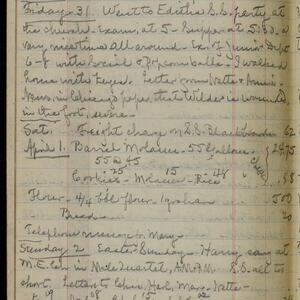 Friday - 31. Went to Editha S.S. party at
the church - Exam, at 5 - Supper at 5:30. a
very nice time all around - Ex. of Junior Dept
6-8 with social & Popcorn balls - I walked
home with Keyes. Letter from Nette &
News in Chicago paper that Wilder is wounded
in the foot, severe -
Sat. Freight charge on S.S. Blackboard 62
April 1. Barrel Molasses - 55 Gallons 24.75
55 @ 45
Cookies 25 - Molasses 15 - Rice 48
Flour - 4/4 bbl flour. 1 graham 5.00
Bread 20
Telephone message to Mary -
Sunday 2 Easter Sunday - Harry sang at
M.E. Ch. in Male Quartet, A.M. & P.M. S.S. all to
short. Letter to Chas, Mary, Nette -